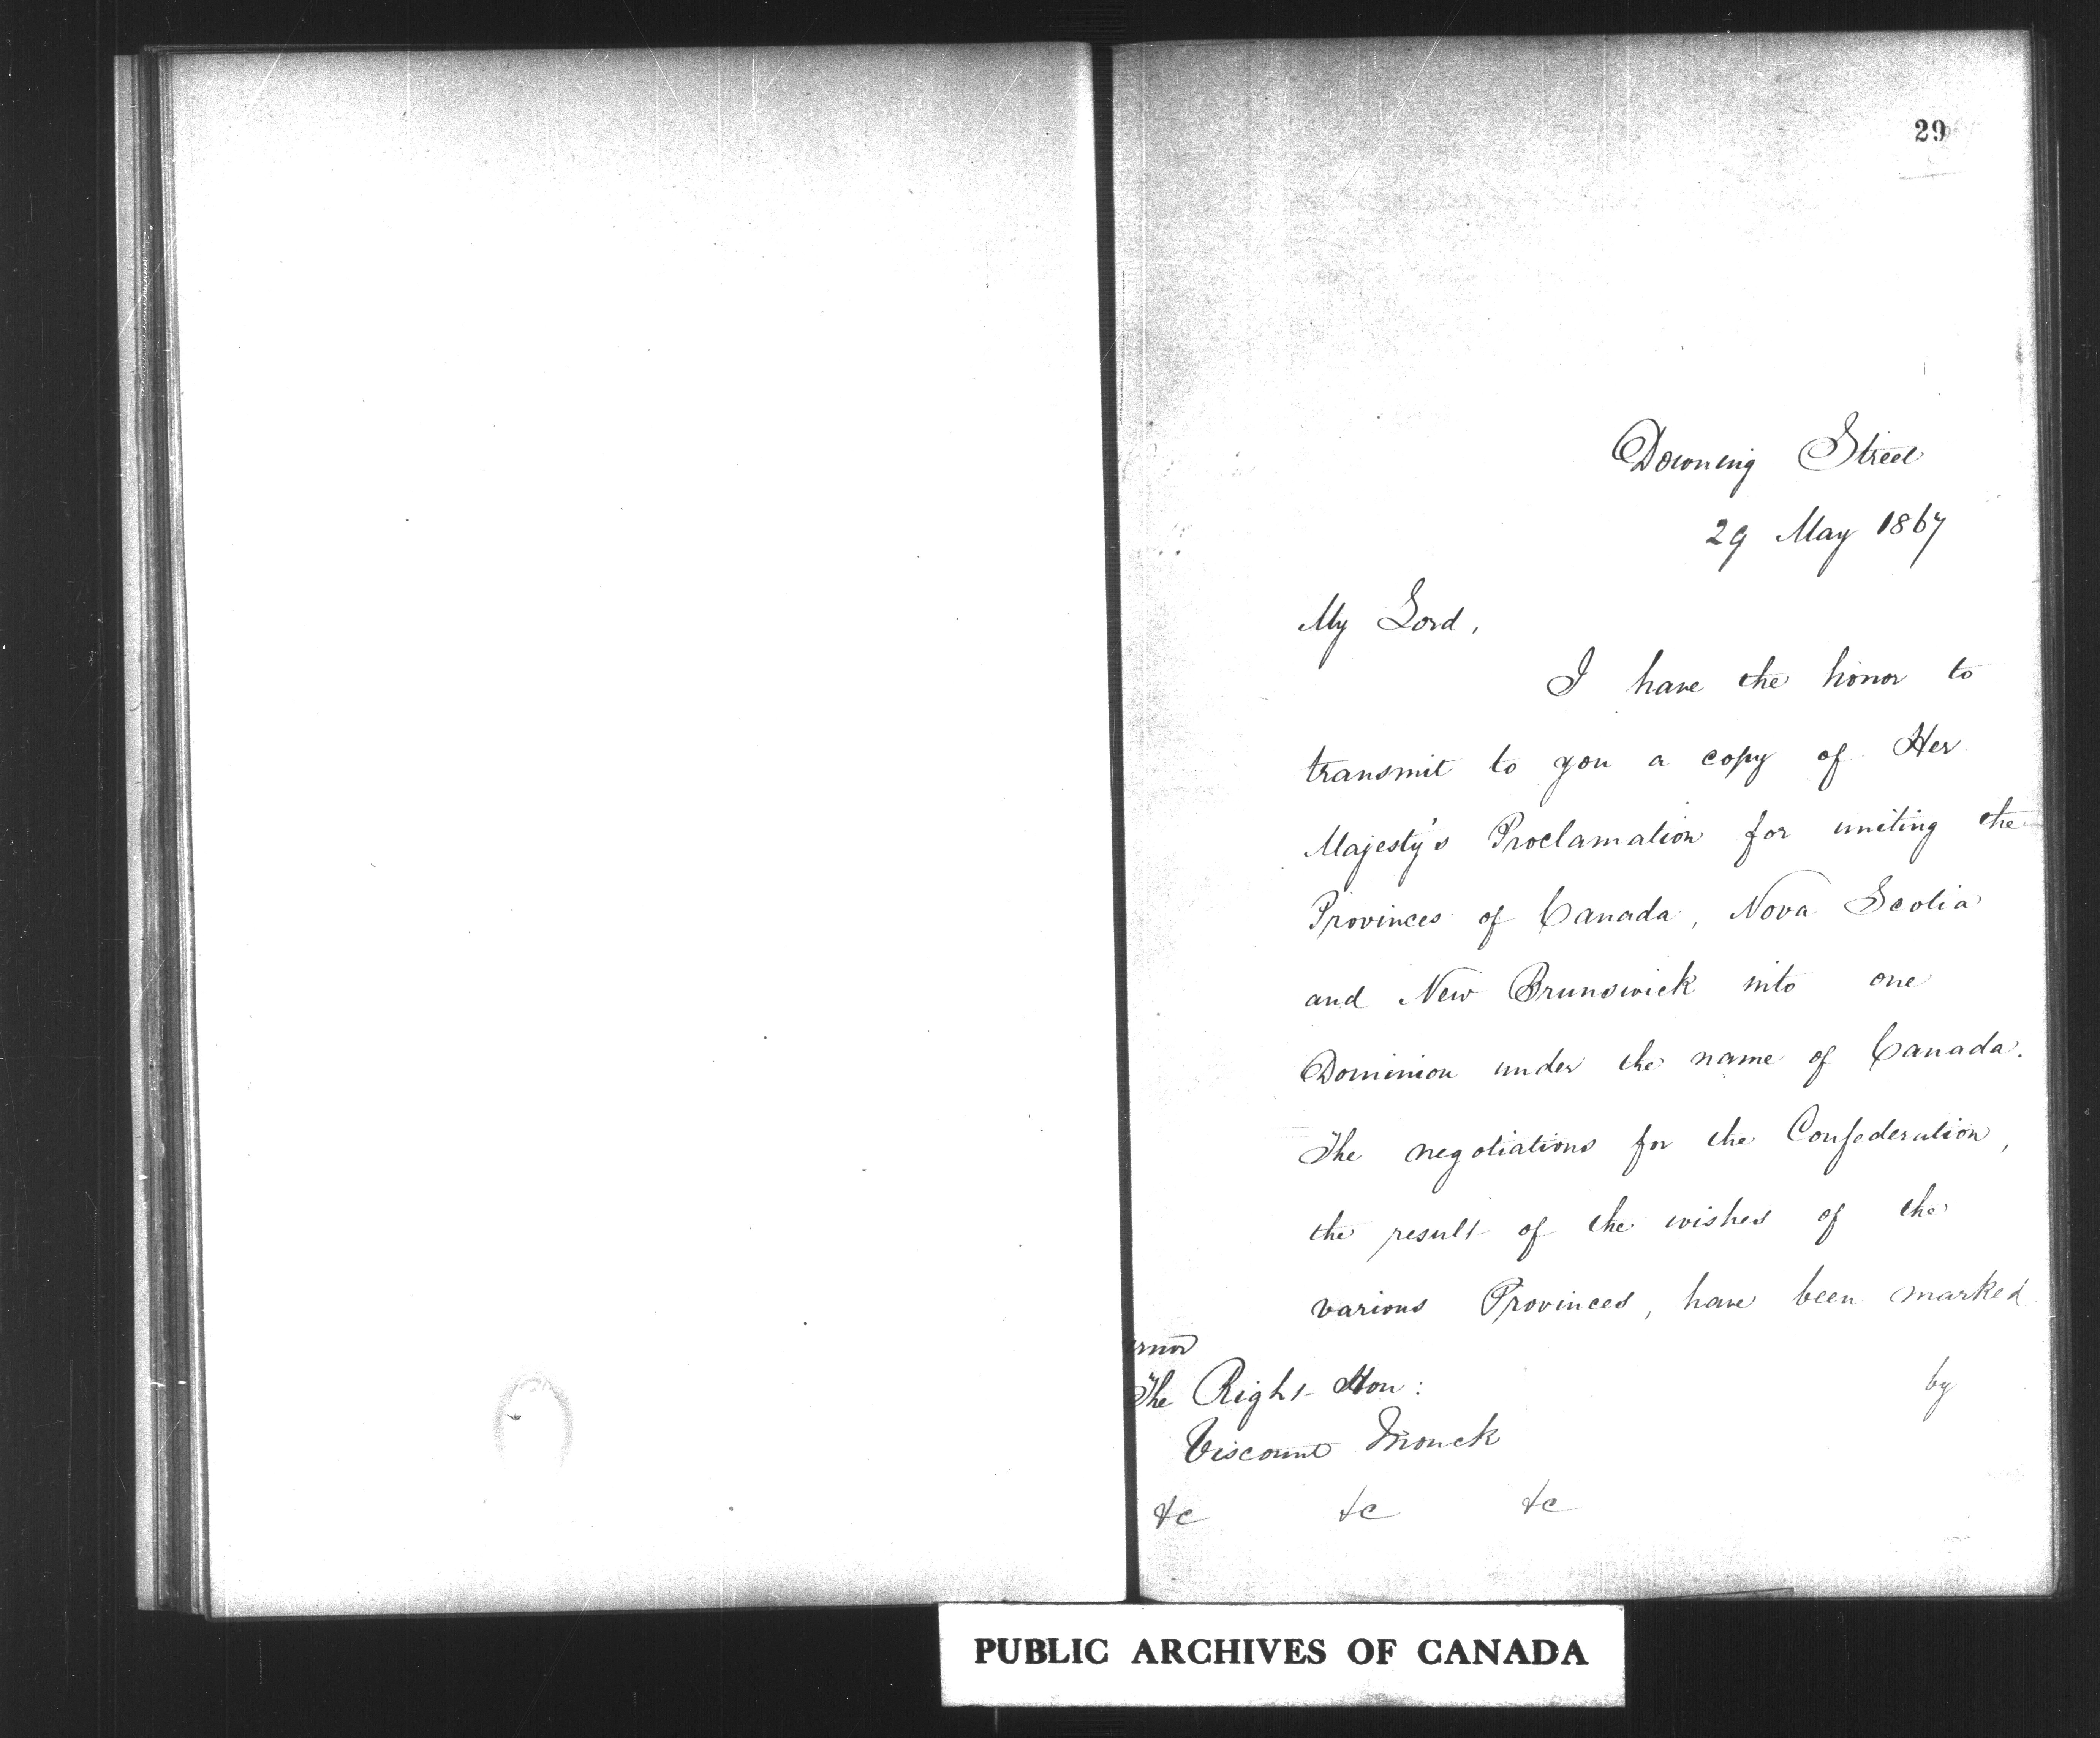 29
Downing Street
29 May 1867
My Lord,
I have the honor to
transmit to you a copy of Her
Majesty's Proclamation for uniting the
Provinces of Canada, Nova Scotia
and New Brunswick into one
Dominion under the name of Canada.
The negotiations for the Confederation,
the result of the wishes of the
various Provinces, have been marked
by
The Right Hon:
Viscount Monck
&c &c &c
PUBLIC ARCHIVES OF CANADA